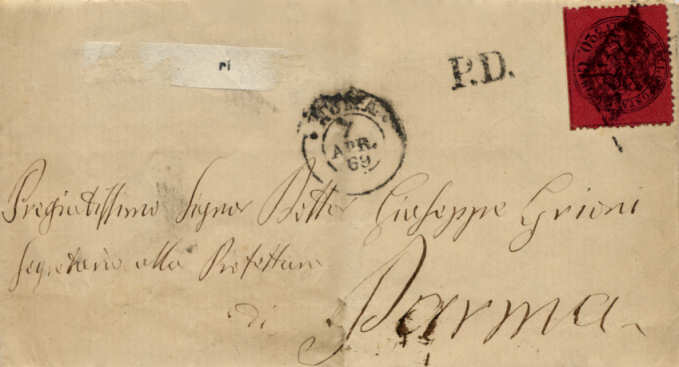 ri
P.D.
ROMA
7
APR.
69
Pregiatissimo Signor Dottor Giuseppe Grioni
Segretario alla Prefettura
di
Parma